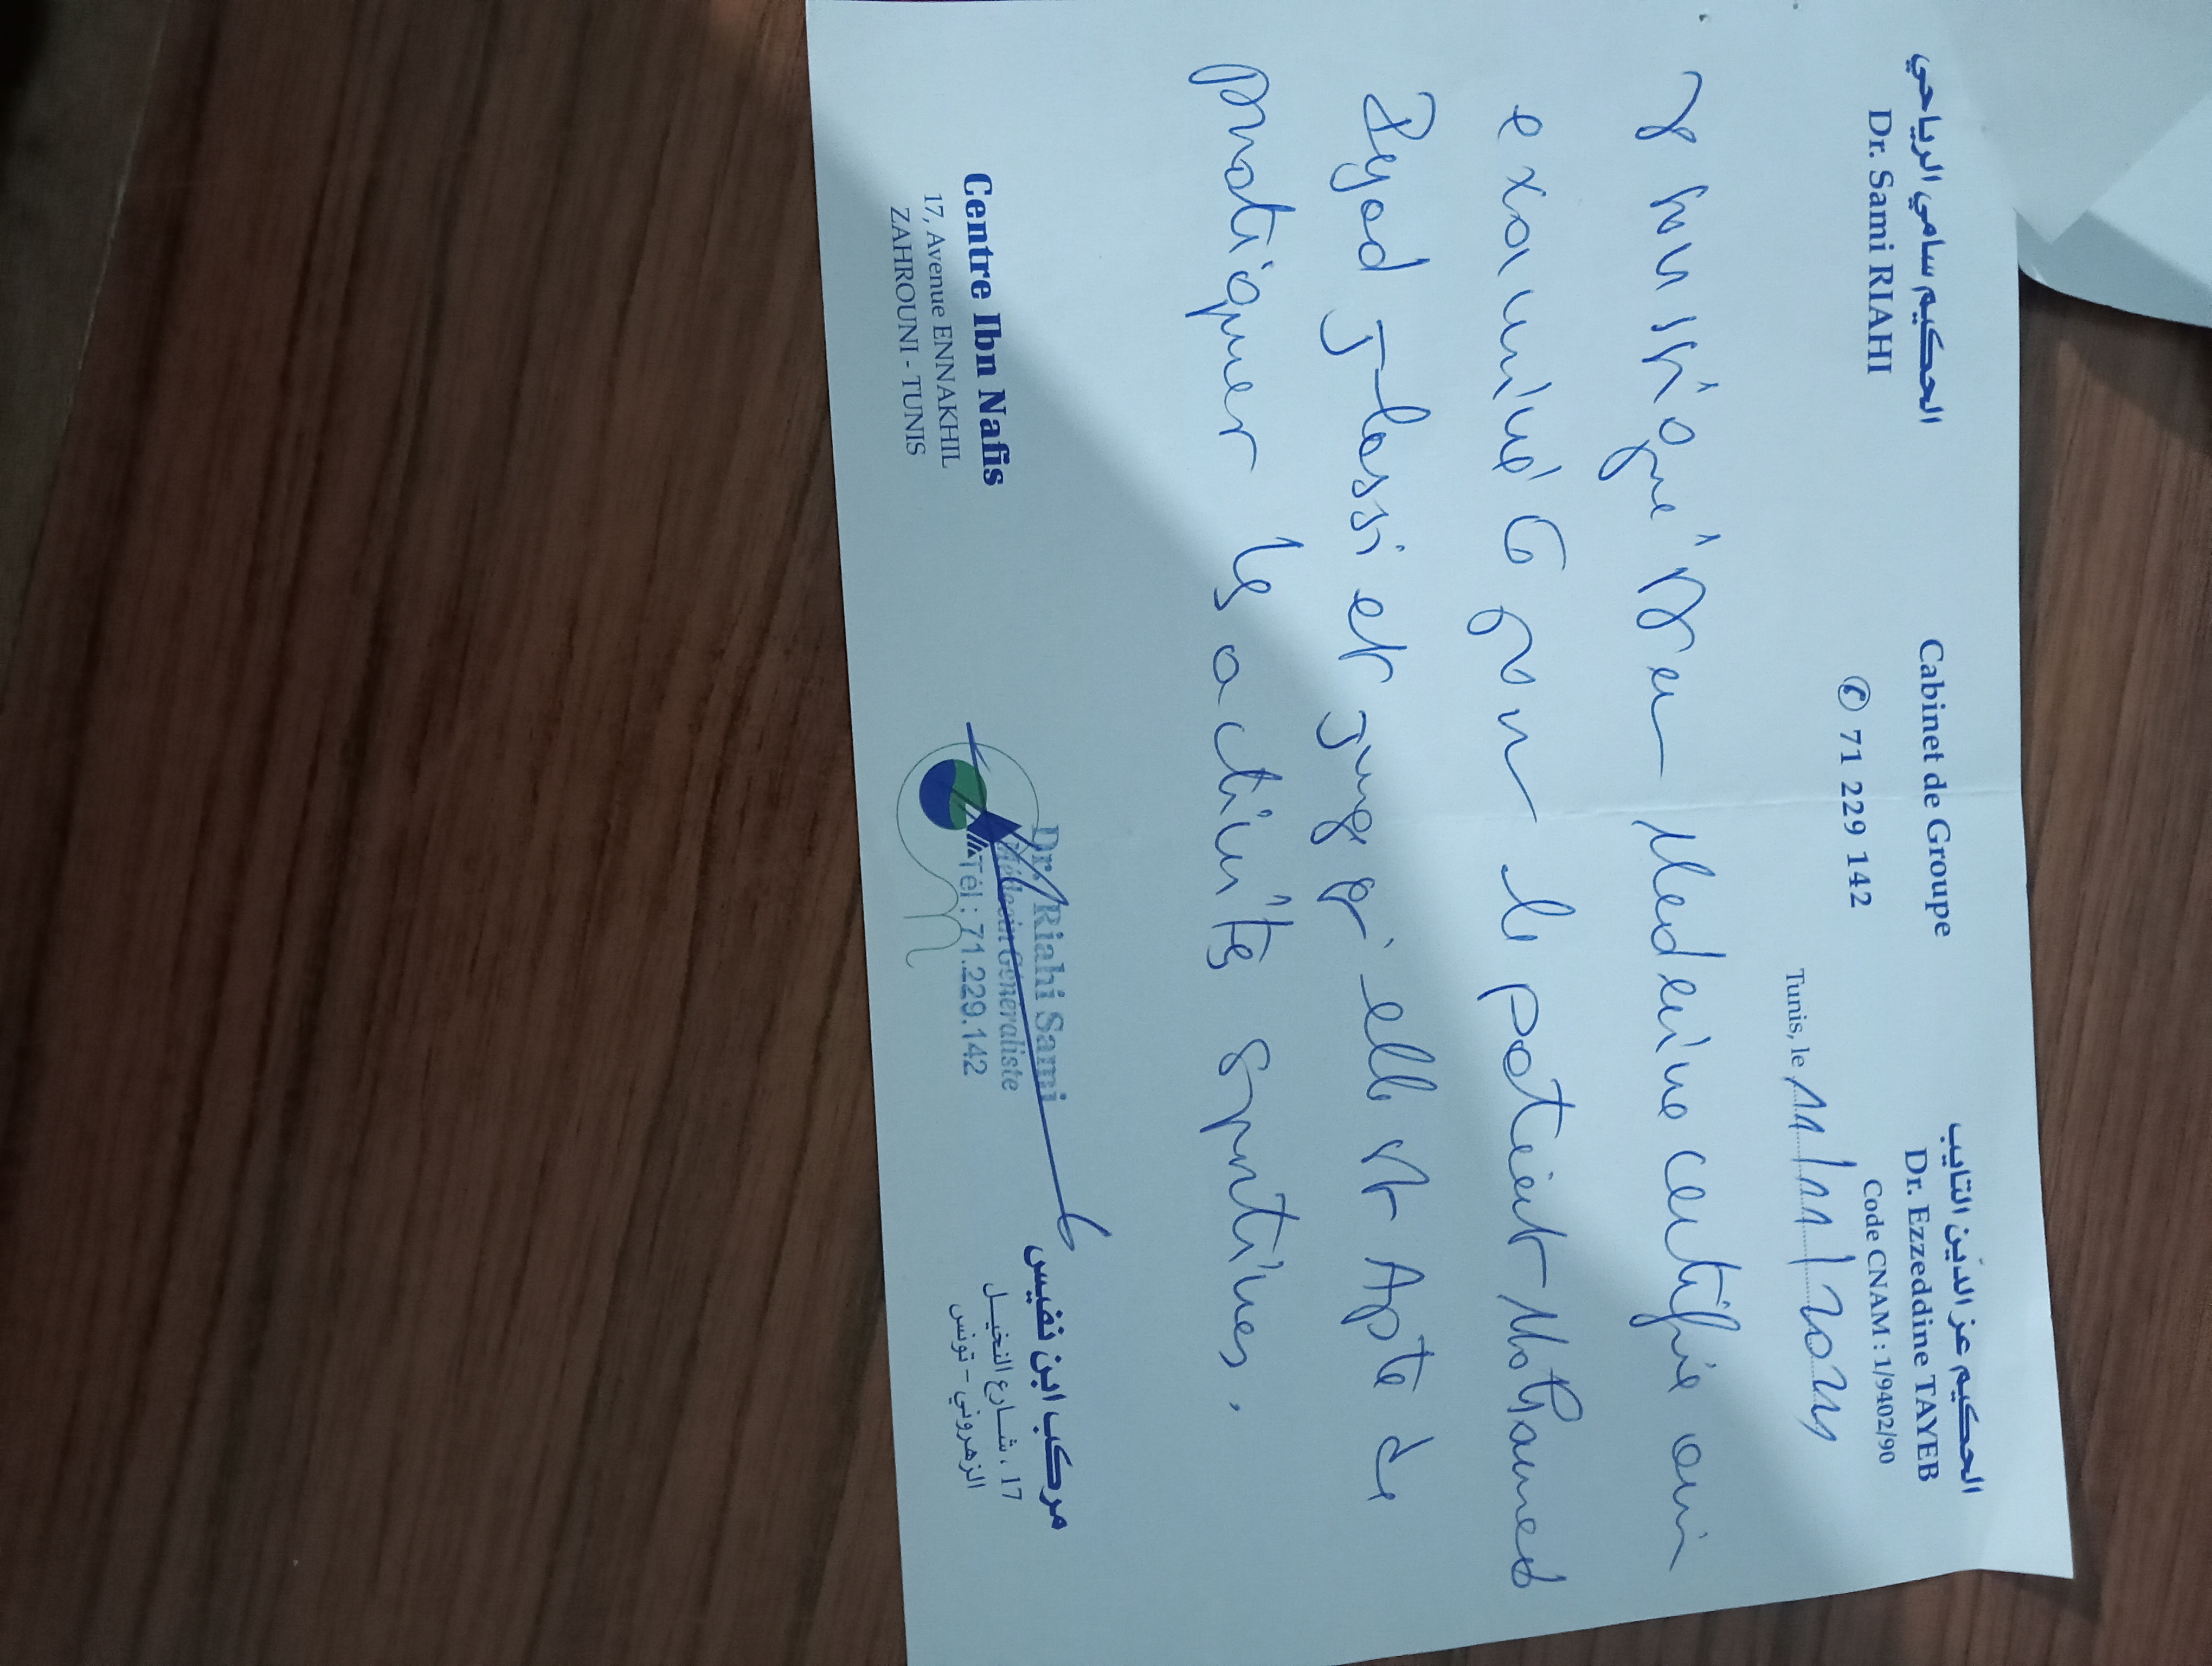 الحكيم سامي الرياحي
Dr. Sami RIAHI
Cabinet de Groupe
✆ 71 229 142
الحكيم عز الدين التايب
Dr. Ezzeddine TAYEB
Code CNAM : 1/9402/90
Tunis, le 11/11/202
Je soussigné Dr en Medecine certifie avoir
examiné ce jour le patient Mohamed
Zeyad Jlassi et juge qu'elle est Apte de
pratiquer les activités sportives.
Dr. Riahi Sami
Médecin Généraliste
Tél : 71.229.142
Centre Ibn Nafis
17, Avenue ENNAKHIL
ZAHROUNI - TUNIS
مركب ابن نفيس
17 ، شارع النخيل
الزهروني - تونس